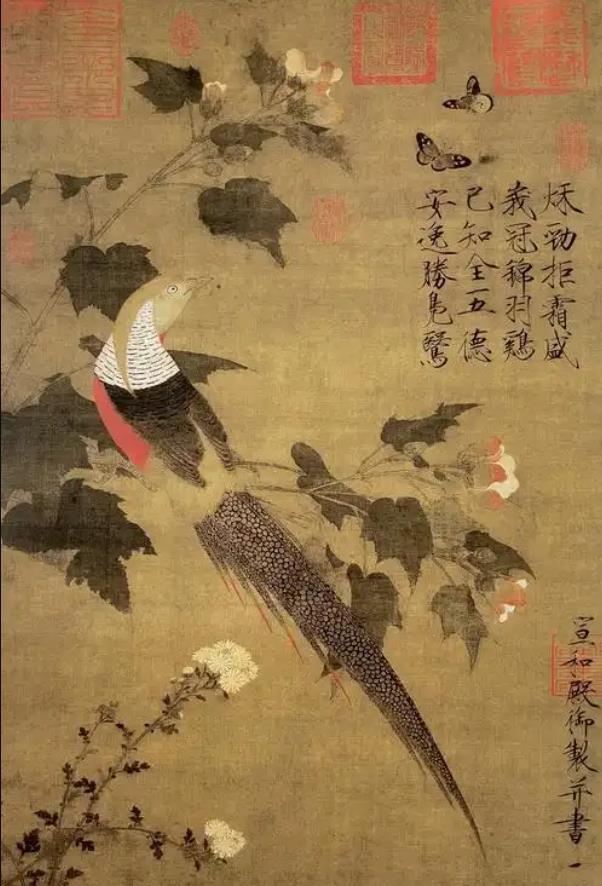 秋勁拒霜盛
峩冠錦羽雞
已知全五德
安逸勝鳧鷖
宣和殿御製并書